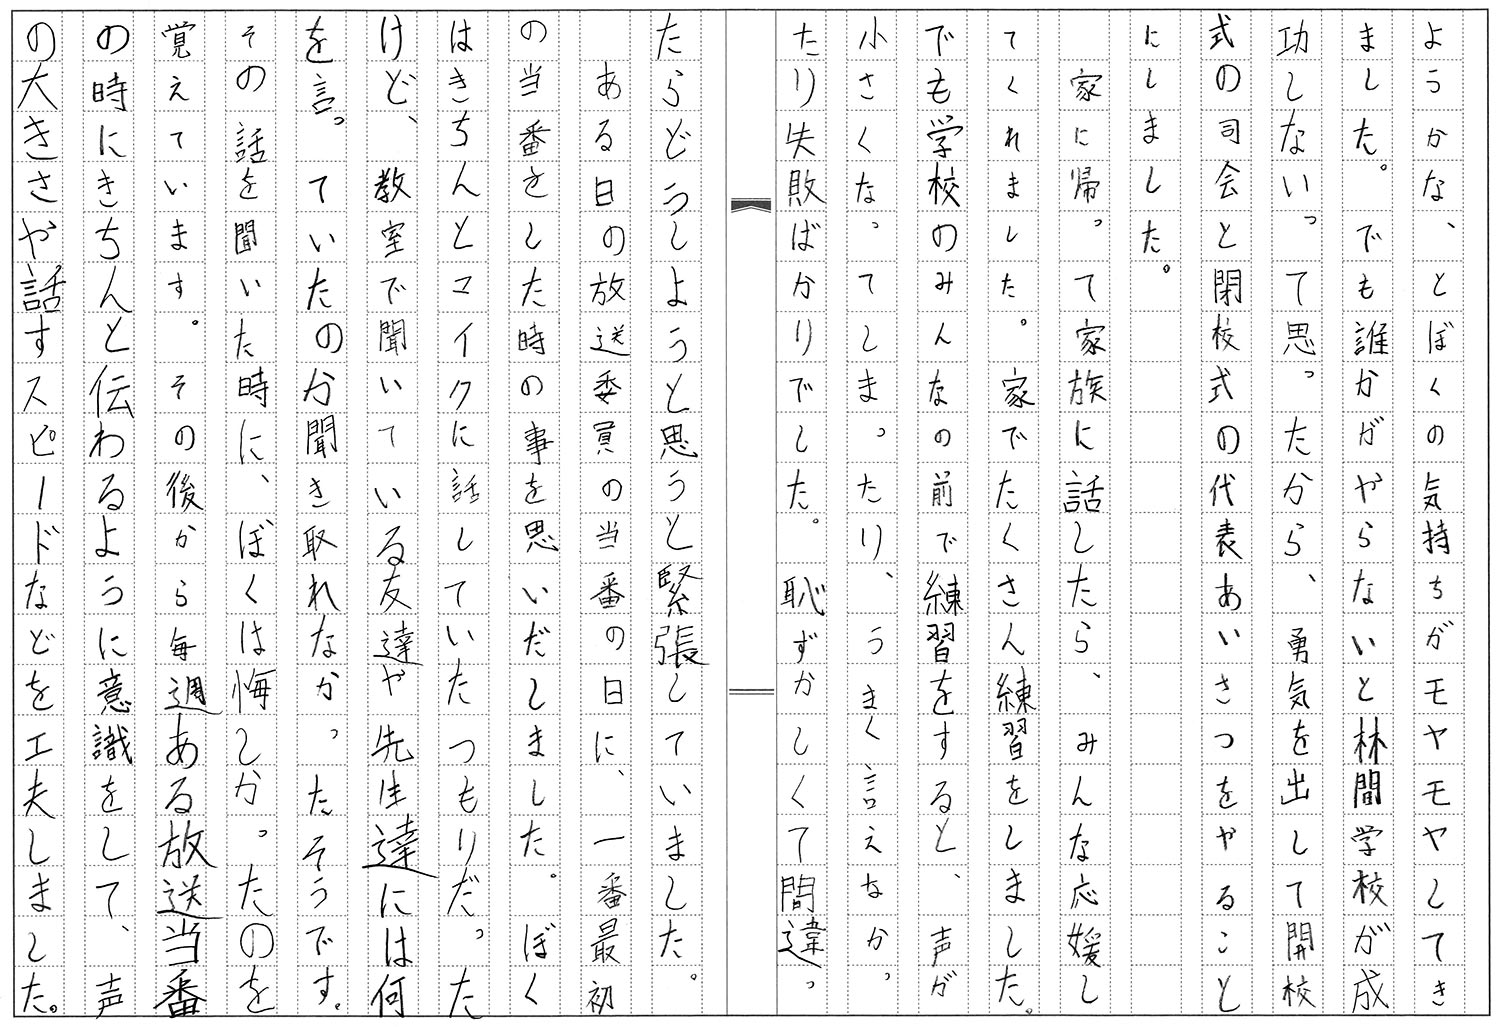 ようかな、とぼくの気持ちがモヤモヤしてき
ました。でも誰かがやらないと林間学校が成
功しない。って思ったから、勇気を出して開校
式の司会と閉校式の代表あいさつをやること
にしました。
家に帰って家族に話したら、みんな応媛し
てくれました。家でたくさん練習をしました。
でも学校のみんなの前で練習をすると、声が
小さくなってしまったり、うまく言えなかっ
たり失敗ばかりでした。恥ずかしくて間違っ
たらどうしようと思うと緊張していました。
ある日の放送委員の当番の日に、一番最初
の当番をした時の事を思いだしました。ぼく
はきちんとマイクに話していたつもりだった
けど、教室で聞いている友達や先生達には何
を言っていたのか聞き取れなかったそうです。
その話を聞いた時に、ぼくは悔しかったのを
覚えています。その後から毎週ある放送当番
の時にきちんと伝わるように意識をして、声
の大きさや話すスピードなどを工夫しました。